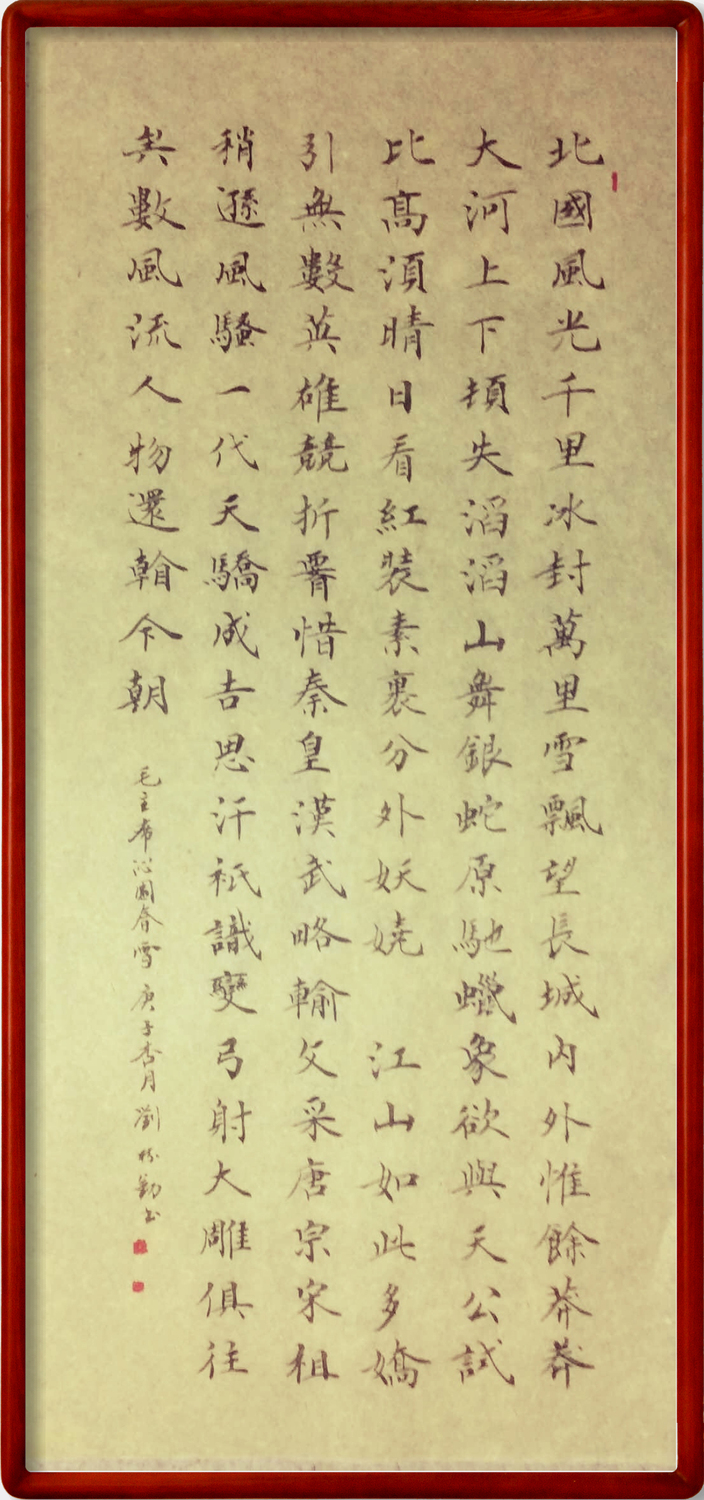 北國風光千里冰封萬里雪飄望長城內外惟餘莽莽
大河上下頓失滔滔山舞銀蛇原馳蠟象欲與天公試
比高須晴日看紅裝素裹分外妖嬈 江山如此多嬌
引無數英雄競折腰惜秦皇漢武略輸文采唐宗宋祖
稍遜風騷一代天驕成吉思汗衹識彎弓射大雕俱往
矣數風流人物還看今朝
毛主席沁園春雪 庚子杏月 劉勤书